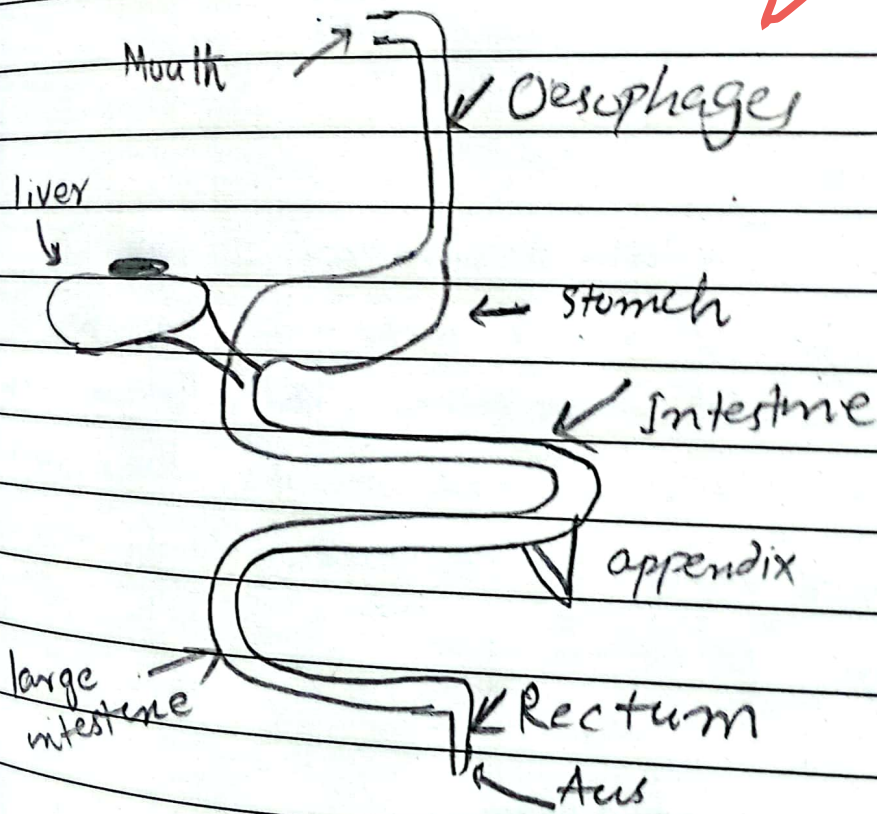 Mouth
Oesophages
liver
Stomch
Intestine
appendix
large
intestine
Rectum
Aus